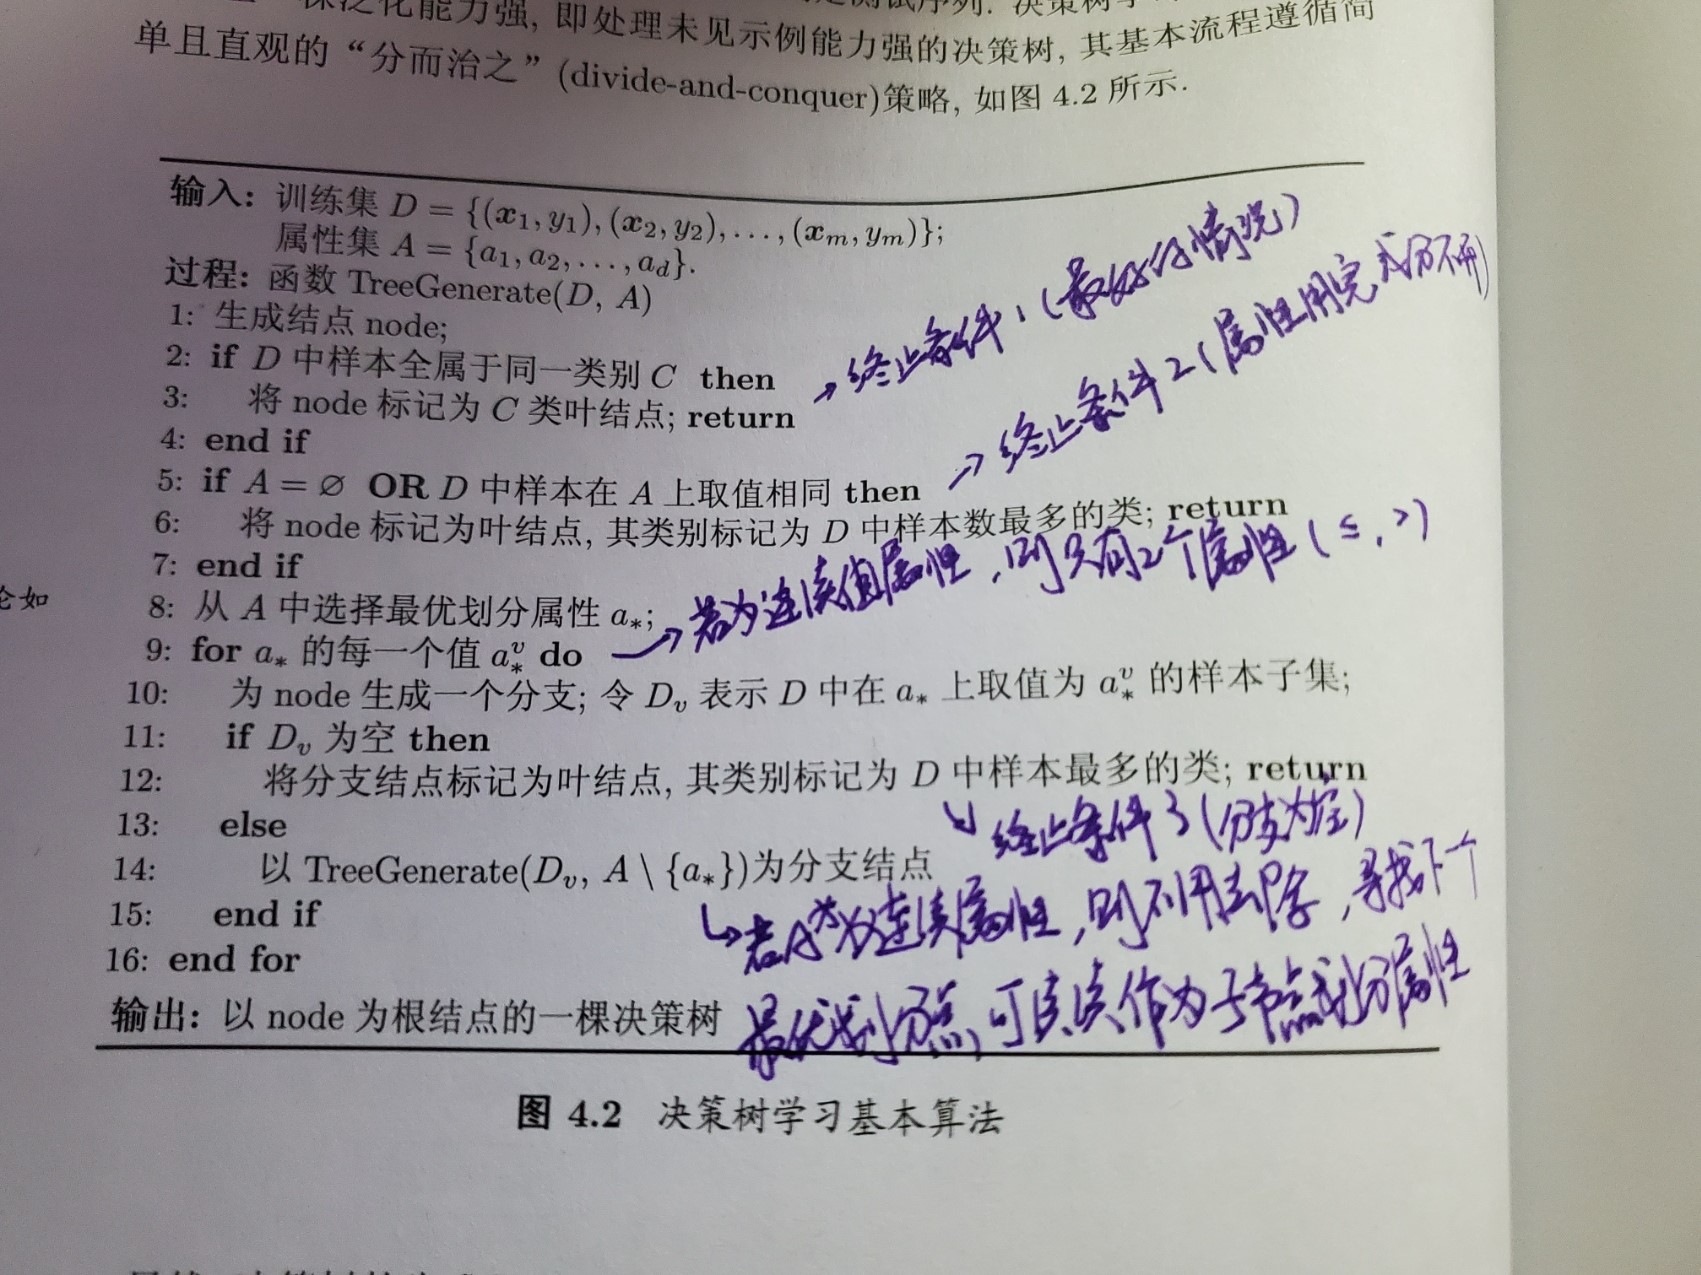 棵泛化能力强, 即处理未见示例能力强的决策树, 其基本流程遵循简
单且直观的“分而治之”(divide-and-conquer)策略, 如图 4.2 所示.
输入: 训练集 D = {(x₁, y₁), (x₂, y₂), . . . , (xₘ, yₘ)};
属性集 A = {a₁, a₂, . . . , a_d}.
过程: 函数 TreeGenerate(D, A)
1: 生成结点 node;
2: if D 中样本全属于同一类别 C then
3: 将 node 标记为 C 类叶结点; return
→终止条件1(最好的情况)
4: end if
5: if A = ∅ OR D 中样本在 A 上取值相同 then
→终止条件2(属性用完或分不开)
6: 将 node 标记为叶结点, 其类别标记为 D 中样本数最多的类; return
7: end if
8: 从 A 中选择最优划分属性 a∗;
9: for a∗ 的每一个值 a∗ᵛ do
→若为连续值属性, 则只有2个属性(≤, >)
10: 为 node 生成一个分支; 令 Dᵥ 表示 D 中在 a∗ 上取值为 a∗ᵛ 的样本子集;
论如
11: if Dᵥ 为空 then
12: 将分支结点标记为叶结点, 其类别标记为 D 中样本最多的类; return
↘终止条件3(分支为空)
13: else
14: 以 TreeGenerate(Dᵥ, A \ {a∗})为分支结点
↳若A类为连续属性, 则不用去除, 寻找下一个
最优划分点, 可继续作为子节点划分属性
15: end if
16: end for
输出: 以 node 为根结点的一棵决策树
图 4.2 决策树学习基本算法